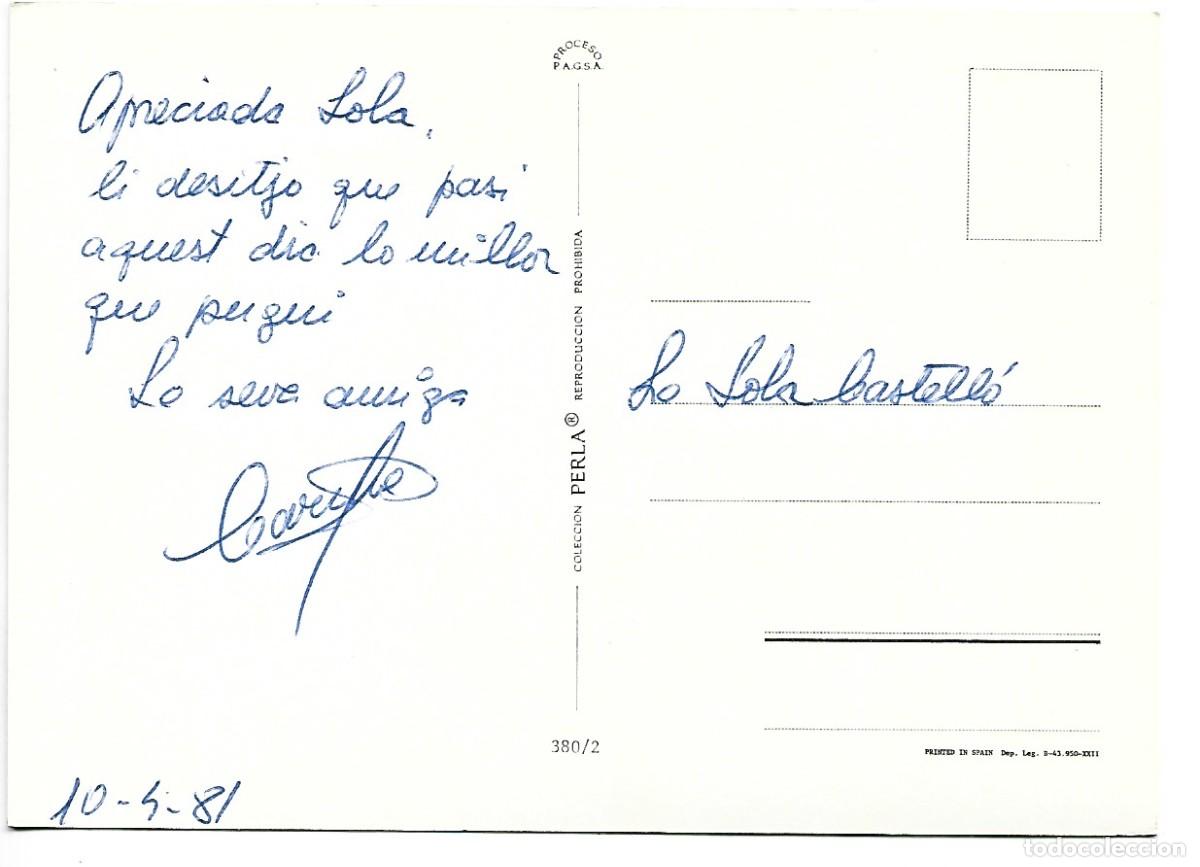 Apreciada Lola,
li desitjo que pasi
aquest dia lo millor
que pugui
La seva amiga
10-4-81
PROCESO
P.A.G.S.A.
COLECCION PERLA® REPRODUCCION PROHIBIDA
380/2
La Lola Castelló
PRINTED IN SPAIN Dep. Leg. B-43.950-XXII
todocoleccion